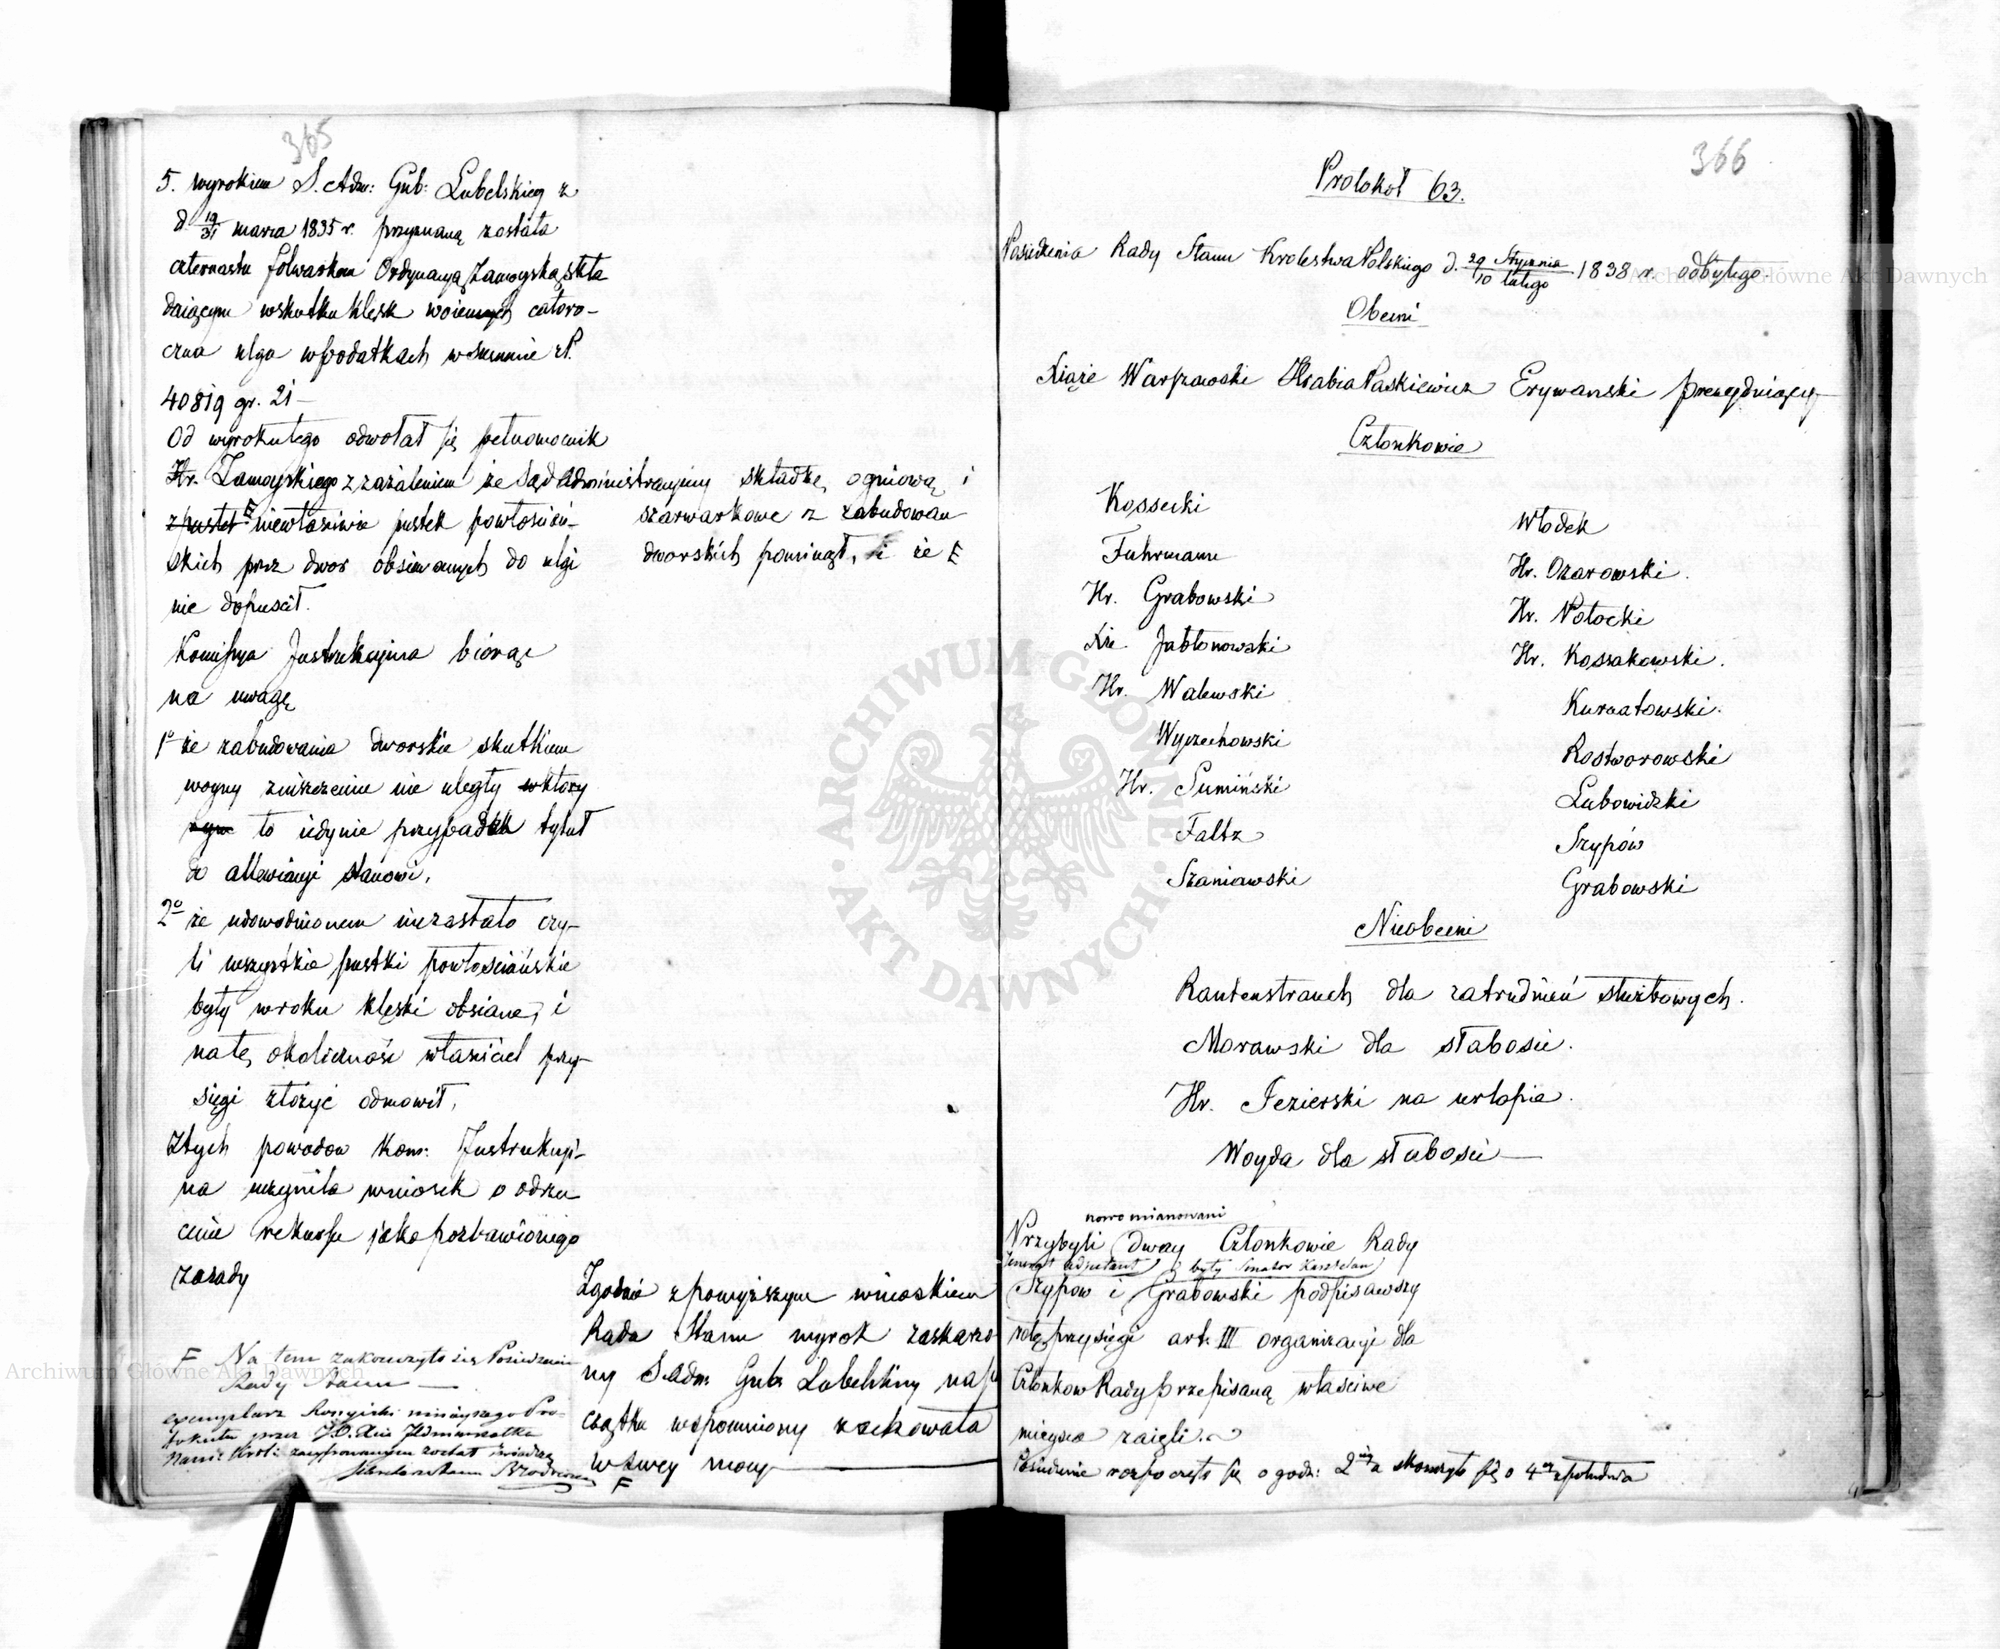 365
5. wyrokiem S. Adm: Gub: Lubelskieg z
d. 19/31 marca 1835 r. przyznaną została
czternastu folwarkom Ordynacyą Zamoyską skła
dziącym wskutku klęsk woiennych całoro-
czna ulga wpodatkach w summie zł.
40819 gr. 21 –
Od wyroku tego odwołał się pełnomocnik
Hr. Zamoyskiego z zażaleniem że Sąd Administracyiny składkę ogniową i
szarwarkowe z zabudowań
niewłaściwie pustek powłościań-
dworskich pominął, i że F
skich prez dwor obsiewanych do ulgi
nie dopuścił.
Komissya Instrukcyina biorąc
na uwagę
1º że zabudowania dworskie skutkiem
woyny zniszczeniu nie uległy w który
to iedynie przypadek tytuł
do allewiacyi stanowi,
2º że udowodnionem niezostało czy-
li wszystkie pustki powłościańskie
były w roku klęski obsiane, i
natę okoliczność właściciel przy-
sięgi złożyć odmowił,
Ztych powodow Kom: Instrukcyi-
na uczyniła wniosek o odrzu
cenie rekursu jako pozbawionego
zasady
Zgodnie z powyższym wnioskiem
Rada Stanu wyrok zaskarżo
ny S. Adm: Gub: Lubelskiey na po
czątku wspomniony zachowała
w swey mocy
F
F Na tem zakończyło się Posiedzenie
Rady Stanu
exemplarz Rossyiski ninieyszego Pro-
tokułu przez J.O. Xcia Feldmarszałka
Namie: Król: zasyfrowanym został świadczę
366
Protokoł 63.
Posiedzenia Rady Stanu Krolestwa Polskiego d. 29 Stycznia/10 Lutego 1838 r. odbytego.
Obecni
Xiąże Warszawski Hrabia Paskiewicz Erywanski prezyduiący
Członkowie
Kossecki
Włodek
Fuhrmann
Hr. Ożarowski.
Hr. Grabowski
Hr. Potocki
Xże. Jabłonowski
Hr. Kossakowski.
Hr. Walewski
Kurnatowski.
Wyczechowski
Rostworowski
Hr. Sumiński
Lubowidzki
Faltz
Szypów
Szaniawski
Grabowski
Nieobecni
Rautenstrauch dla zatrudnień służbowych.
Morawski dla słabości.
Hr. Jezierski na urlopie.
Woyda dla słabości
nowo mianowani
Przybyli dway Członkowie Rady
Jenerał adjutant były Senator Kasztelan
Szypow i Grabowski podpisawszy
rotę przysięgi art. III organizacyi dla
Członkow Rady przepisaną właściwe
mieysca zaięli.
Posiedzenie rozpoczęto się o godz: 2éy a skonczyło się o 4éy z południa
ARCHIWUM GŁÓWNE AKT DAWNYCH
Archiwum Główne Akt Dawnych
Archiwum Główne Akt Dawnych